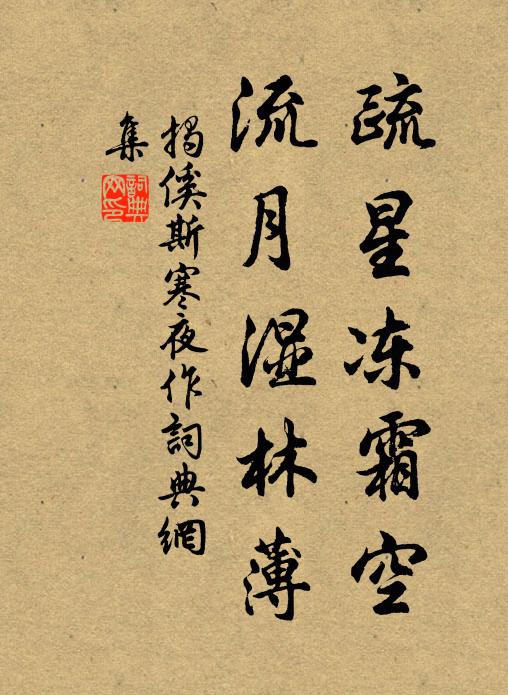 疏星冻霜空
流月湿林薄
揭傒斯寒夜作詞典網
集
詞典
网印